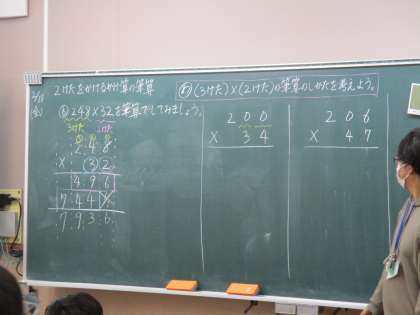 2けたをかけるかけ算の筆算
め (3けた)×(2けた)の筆算のしかたを考えよう。
248×32を筆算でしてみましょう。
3けた 2けた
248
× 32
496
744
7936
200
× 34
206
× 47